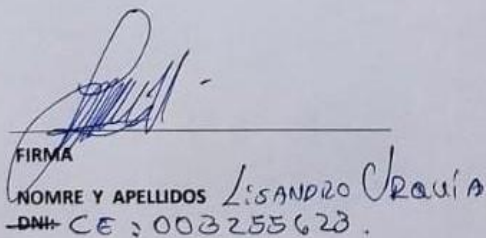 FIRMA
NOMRE Y APELLIDOS LISANDRO URQUÍA
DNI: CE: 003255623.